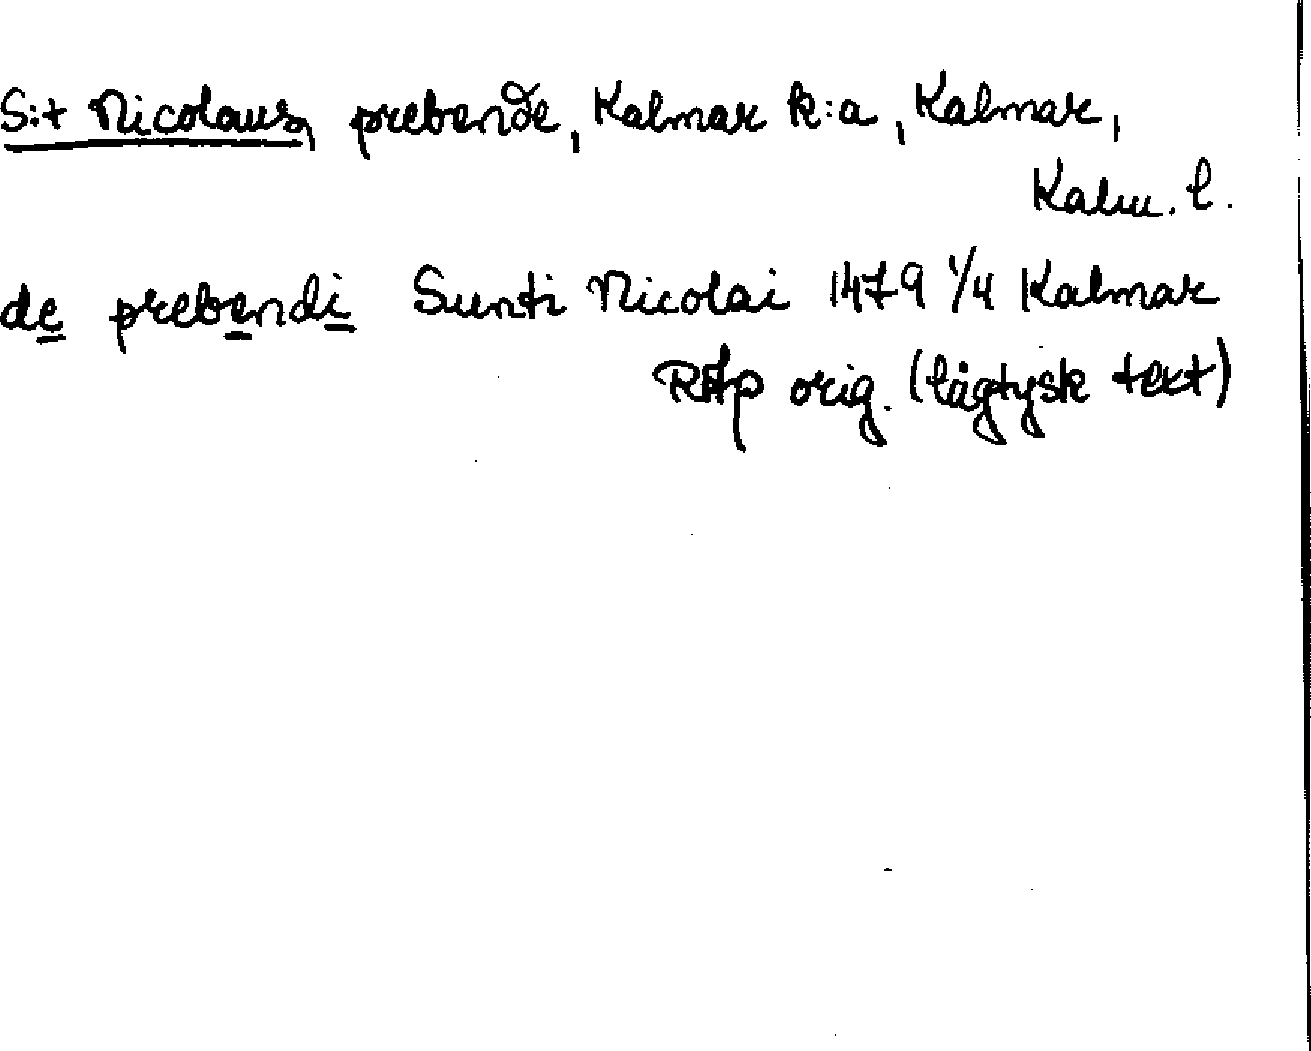 S:t Nicolaus, prebende, Kalmar k:a, Kalmar,
Kalm. l.
de prebendi Sunti Nicolai 1479 1/4 Kalmar
RAp orig. (lågtysk text)